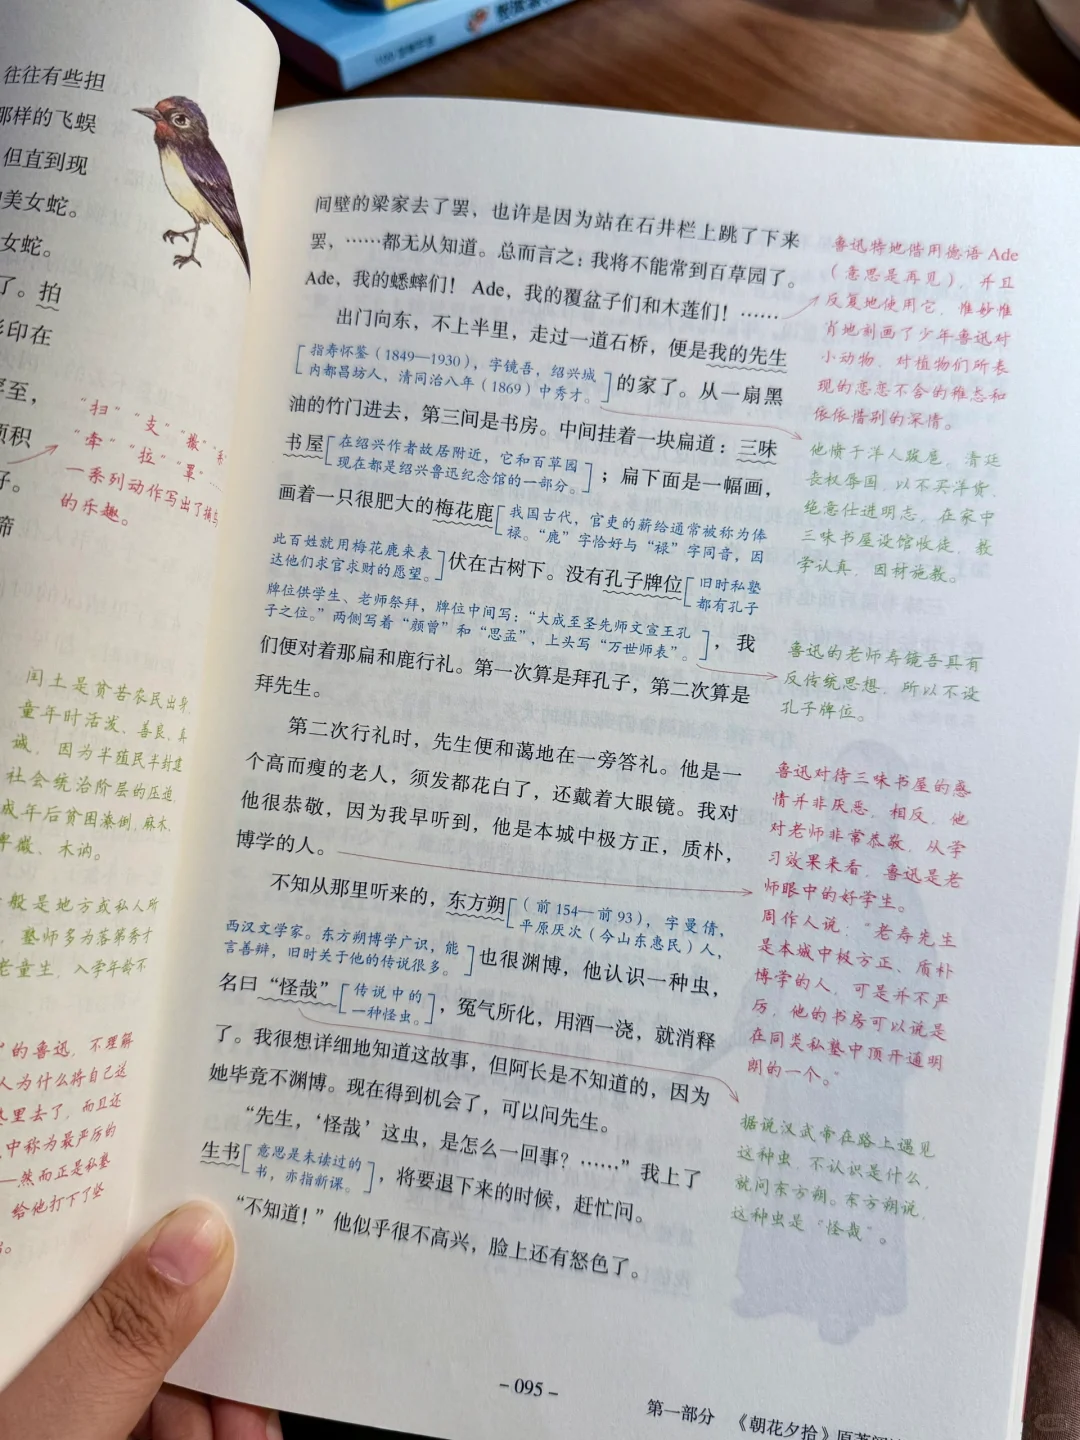 往往有些担
那样的飞蜈
但直到现
美女蛇。
女蛇。
了。拍
影印在
罕至，
积
子。
“扫”“支”“撒”
“牵”“拉”“罩”
一系列动作写出了捕鸟
的乐趣。
闰土是贫苦农民出身，
童年时活泼、善良、真
诚，因为半殖民半封建
社会统治阶层的压迫，
成年后贫困潦倒，麻木、
卑微、木讷。
一般是地方或私人所
，塾师多为落第秀才
老童生，入学年龄不
的鲁迅，不理解
人为什么将自己送
塾里去了，而且还
中称为最严厉的
然而正是私塾
给他打下了坚
间壁的梁家去了罢，也许是因为站在石井栏上跳了下来
罢，……都无从知道。总而言之：我将不能常到百草园了。
Ade，我的蟋蟀们！ Ade，我的覆盆子们和木莲们！……
出门向东，不上半里，走过一道石桥，便是我的先生
[指寿怀鉴（1849—1930），字镜吾，绍兴城
内都昌坊人，清同治八年（1869）中秀才。]的家了。从一扇黑
油的竹门进去，第三间是书房。中间挂着一块扁道：三味
书屋[在绍兴作者故居附近，它和百草园
现在都是绍兴鲁迅纪念馆的一部分。]；扁下面是一幅画，
画着一只很肥大的梅花鹿[我国古代，官吏的薪给通常被称为俸
禄。“鹿”字恰好与“禄”字同音，因
此百姓就用梅花鹿来表
达他们求官求财的愿望。]伏在古树下。没有孔子牌位[旧时私塾
都有孔子
牌位供学生、老师祭拜，牌位中间写：“大成至圣先师文宣王孔
子之位。”两侧写着“颜曾”和“思孟”，上头写“万世师表”。]，我
们便对着那扁和鹿行礼。第一次算是拜孔子，第二次算是
拜先生。
第二次行礼时，先生便和蔼地在一旁答礼。他是一
个高而瘦的老人，须发都花白了，还戴着大眼镜。我对
他很恭敬，因为我早听到，他是本城中极方正，质朴，
博学的人。
不知从那里听来的，东方朔[（前154—前93），字曼倩，
平原厌次（今山东惠民）人，
西汉文学家。东方朔博学广识，能
言善辩，旧时关于他的传说很多。]也很渊博，他认识一种虫，
名曰“怪哉”[传说中的
一种怪虫。]，冤气所化，用酒一浇，就消释
了。我很想详细地知道这故事，但阿长是不知道的，因为
她毕竟不渊博。现在得到机会了，可以问先生。
“先生，‘怪哉’这虫，是怎么一回事？……”我上了
生书[意思是未读过的
书，亦指新课。]，将要退下来的时候，赶忙问。
“不知道！”他似乎很不高兴，脸上还有怒色了。
鲁迅特地借用德语Ade
（意思是再见），并且
反复地使用它，惟妙惟
肖地刻画了少年鲁迅对
小动物、对植物们所表
现的恋恋不舍的稚态和
依依惜别的深情。
他愤于洋人跋扈，清廷
丧权辱国，以不买洋货，
绝意仕进明志，在家中
三味书屋设馆收徒，教
学认真，因材施教。
鲁迅的老师寿镜吾具有
反传统思想，所以不设
孔子牌位。
鲁迅对待三味书屋的感
情并非厌恶，相反，他
对老师非常恭敬，从学
习效果来看，鲁迅是老
师眼中的好学生。
周作人说：“老寿先生
是本城中极方正、质朴
博学的人，可是并不严
厉，他的书房可以说是
在同类私塾中顶开通明
朗的一个。”
据说汉武帝在路上遇见
这种虫，不认识是什么，
就问东方朔。东方朔说，
这种虫是“怪哉”。
- 095 -
第一部分 《朝花夕拾》原著